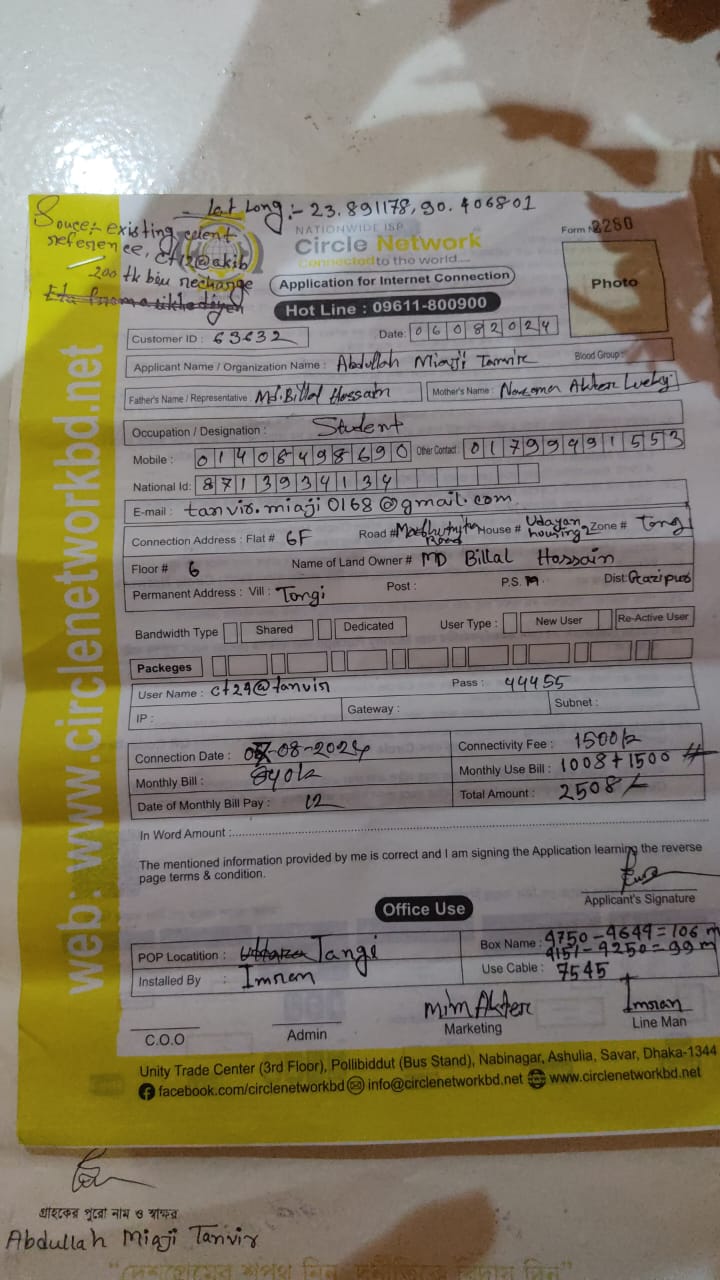 Lat Long:- 23.891178, 90.406801
Souce:- existing client
reference, ct12@akib
200 tk bill recharge
NATIONWIDE ISP
Circle Network
Connected to the world....
Form No 2280
Photo
Application for Internet Connection
Hot Line : 09611-800900
Customer ID : 63632 Date: 06082024
Applicant Name / Organization Name : Abdullah Miaji Tanvir Blood Group :
Father's Name / Representative : Md. Billal Hossain Mother's Name : Akter Lucky
Occupation / Designation : Student
Mobile : 01408498690 Other Contact : 01799491553
National Id: 8713934134
E-mail : tanvir.miaji0168@gmail.com
Connection Address : Flat # 6F Road # Road House # Udayan housing 2 Zone # Tongi
Floor # 6 Name of Land Owner # MD Billal Hossain
Permanent Address : Vill : Tongi Post : P.S. Dist: Gazipur
Bandwidth Type Shared Dedicated User Type : New User Re-Active User
Packeges
User Name : ct29@tanvir Pass : 44455
IP : Gateway : Subnet :
Connection Date : -08-2024 Connectivity Fee : 1500/=
Monthly Bill : Monthly Use Bill : 1008+1500
Date of Monthly Bill Pay : 12 Total Amount : 2508/-
In Word Amount :
The mentioned information provided by me is correct and I am signing the Application learning the reverse
page terms & condition.
Applicant's Signature
Office Use
POP Locatition : Tangi Box Name : 4750-4644=106 m
4151-4250=99 m
Installed By : Imran Use Cable : 7545
Mim Akter Imran
C.O.O Admin Marketing Line Man
Unity Trade Center (3rd Floor), Pollibiddut (Bus Stand), Nabinagar, Ashulia, Savar, Dhaka-1344
facebook.com/circlenetworkbd info@circlenetworkbd.net www.circlenetworkbd.net
web: www.circlenetworkbd.net
গ্রাহকের পুরো নাম ও স্বাক্ষর
Abdullah Miaji Tanvir